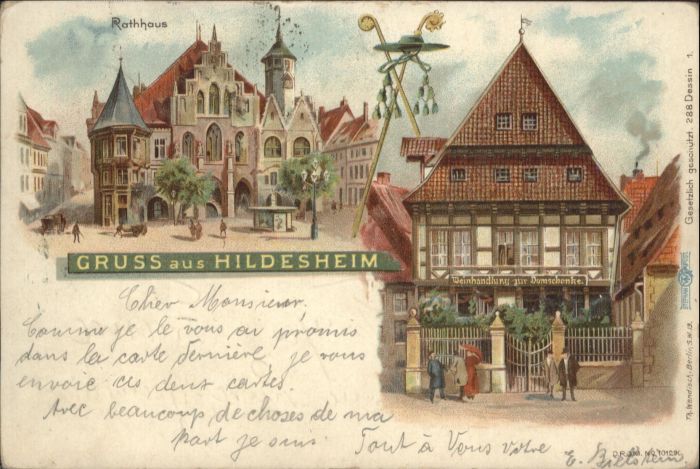 Rathhaus
GRUSS aus HILDESHEIM
Weinhandlung zur Domschenke.
Cher Monsieur.
Comme je le vous ai promis
dans la carte dernière, je vous
envoie ces deux cartes.
Avec beaucoup de choses de ma
part je suis. Tout à Vous votre
E.
Gesetzlich geschützt 288 Dessin 1.
Berlin, S.W.19.